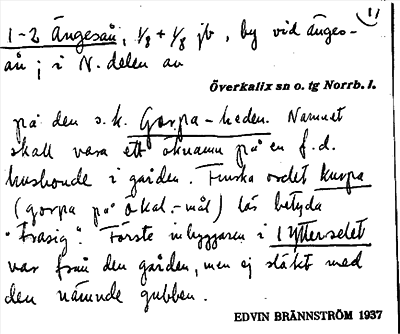 11
1-2 Ängesån, 1/8 + 1/8 jb, by vid änges-
ån ; i N. delen av
Överkalix sn o. tg Norrb. l.
på den s.k. Gorpa-heden. Namnet
skall vara ett öknamn på en f.d.
husbonde i gården. Finska ordet kurpa
(gorpa på Ökal.-mål) lär betyda
"trasig". Förste inbyggaren i 1 Ytterselet
var från den gården, men ej släkt med
den nämnde gubben.
EDVIN BRÄNNSTRÖM 1937